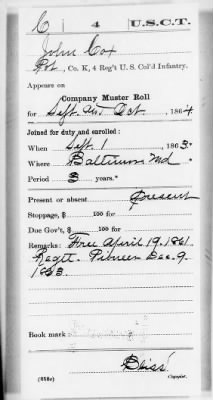 C 4 U.S.C.T.
John Cox
Pvt., Co. K, 4 Reg't U. S. Col'd Infantry.
Appears on
Company Muster Roll
for Sept. and Oct., 1864
Joined for duty and enrolled:
When Sept. 1, 1863.
Where Baltimore Md.
Period 3 years.*
Present or absent Present
Stoppage, $ 100 for
Due Gov't, $ 100 for
Remarks: Free April 19, 1861.
Regtl. Pioneer Dec. 9.
1863.
Book mark:
Bliss
(858c) Copyist.